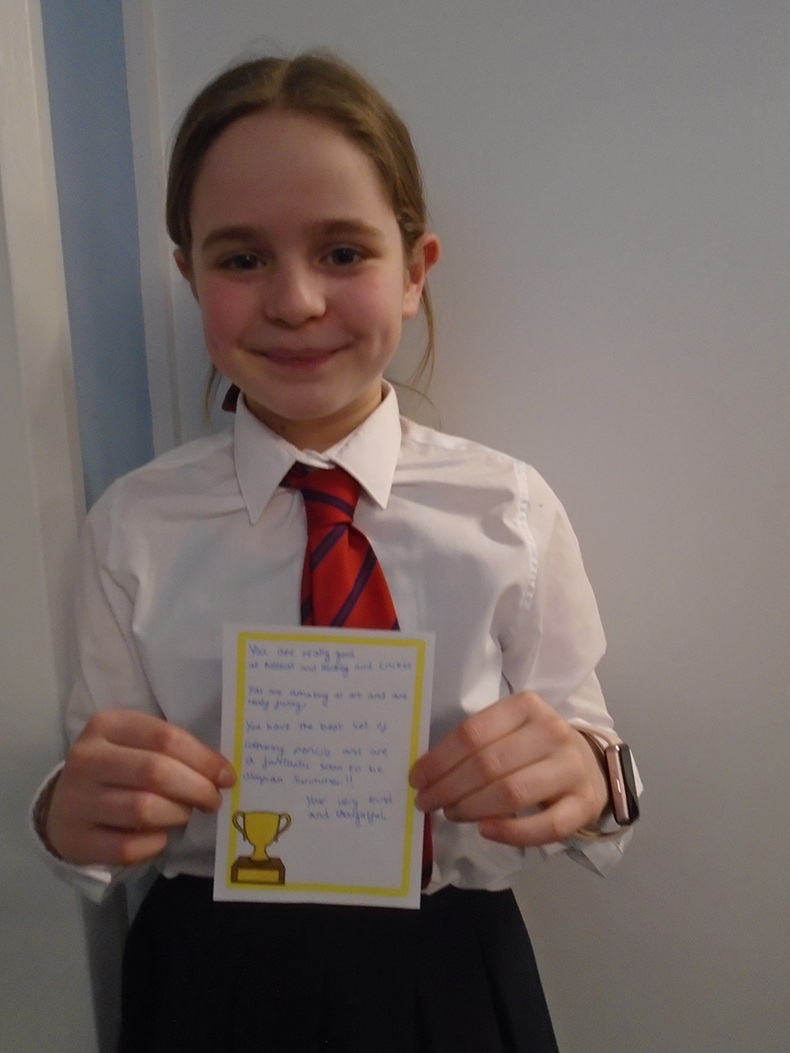 You are really good
at netball and hockey and cricket
You are amazing at art and are
really funny.
You have the best set of
colouring pencils and are
a fantastic soon to be
olympian swimmer!!
Your very kind
and thoughtful.